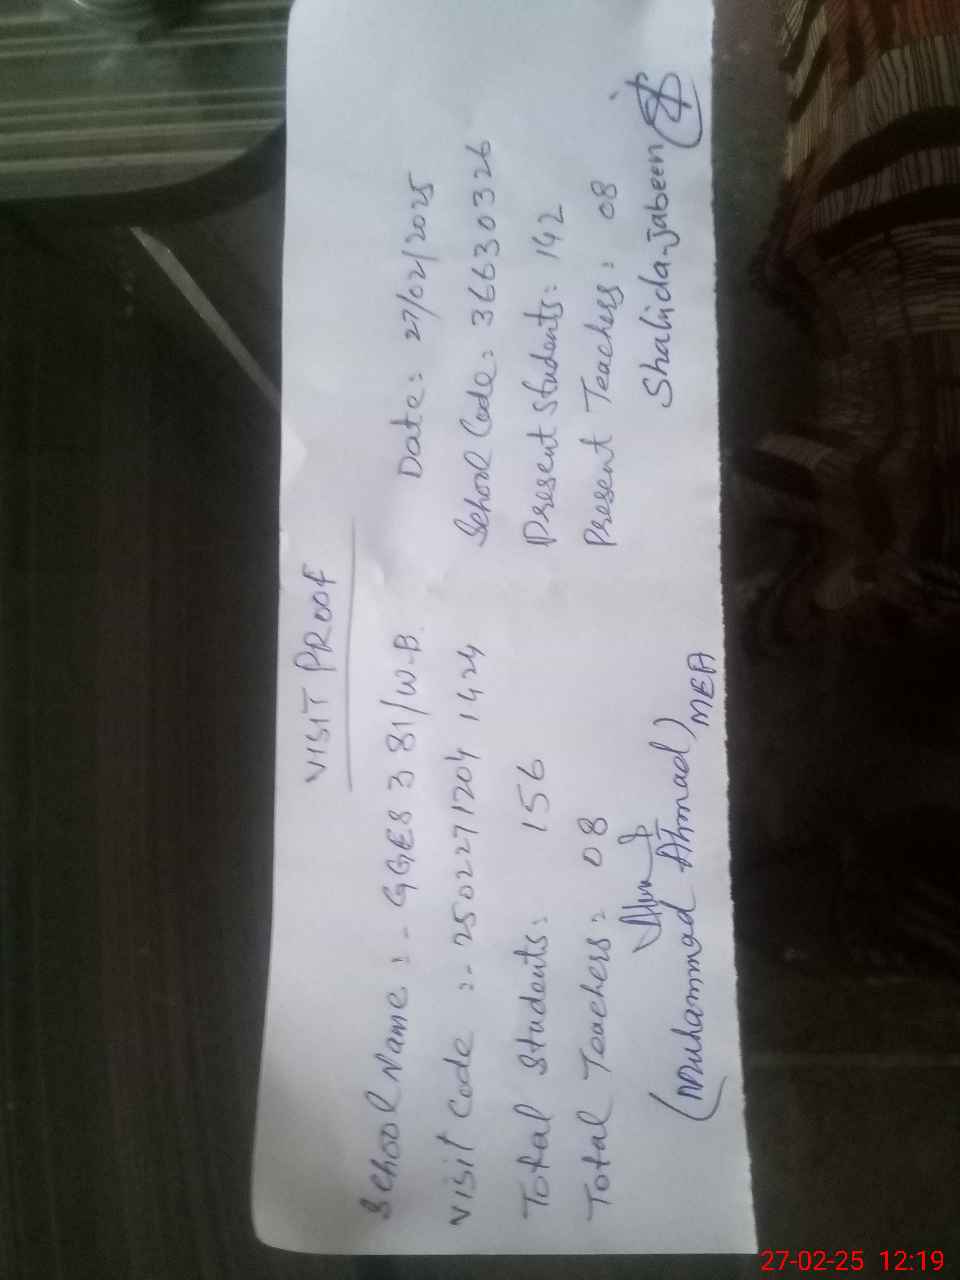 VISIT PROOF
School Name :- GGES 381/W-B. Date: 27/02/2025
Visit Code :- 25022712041424 School Code: 36630326
Total Students: 156 Present Students: 142
Total Teachers: 08 Present Teachers: 08
(Muhammad Ahmad) MEA Shahida Jabeen
27-02-25 12:19